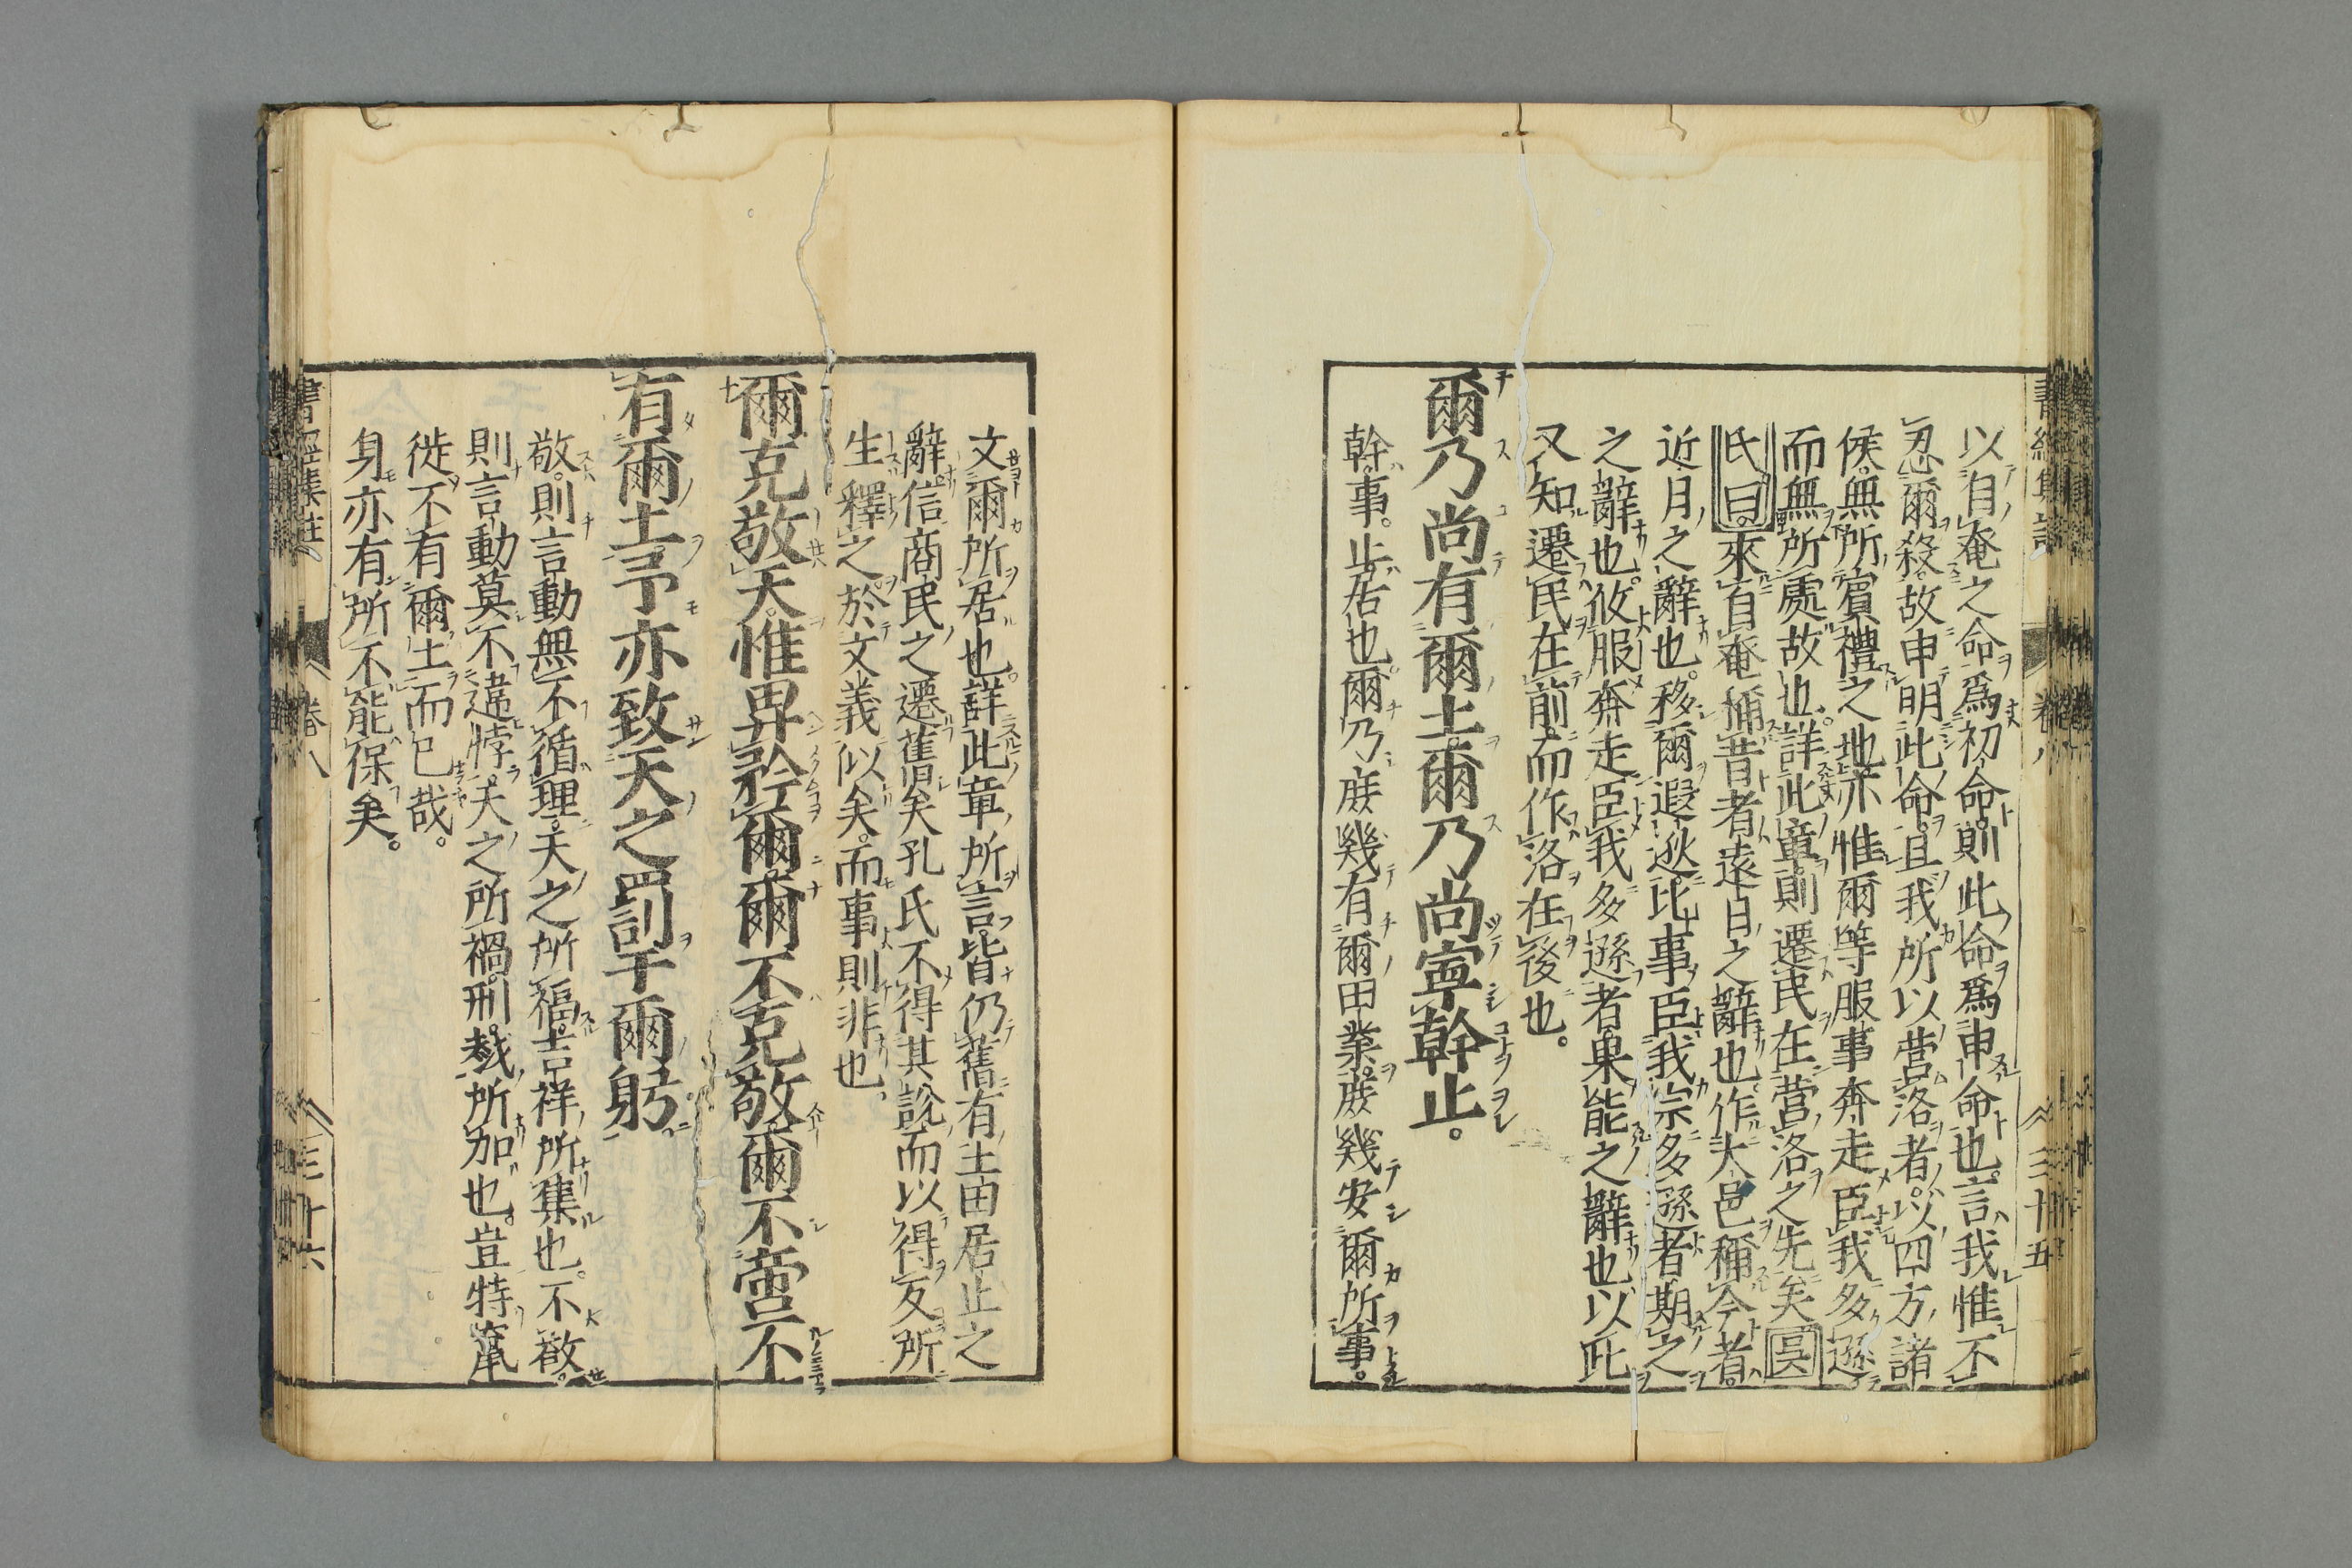 以自奄之命爲初命則此命爲申命也言我惟不
忍爾殺故申明此命且我所以營洛者以四方諸
侯無所賓禮之地亦惟爾等服事奔走臣我多遜
而無所處故也詳此章則遷民在營洛之先矣吳
氏曰來自奄稱昔者遠日之辭也作大邑稱今者
近月之辭也移爾遐逖比事臣我宗多遜者期之
之辭也攸服奔走臣我多遜者果能之辭也以此
又知遷民在前而作洛在後也。
爾乃尚有爾土爾乃尚寧幹止。
幹事。止居也爾乃庶幾有爾田業庶幾安爾所事。
書經集註 卷八 三十五
文爾所居也。詳此章所言皆仍舊有土田居止之
辭信商民之遷舊矣孔氏不得其說而以得反所
生釋之於文義似矣。而事則非也
爾克敬天惟畀矜爾爾不克敬爾不啻不
有爾土予亦致天之罰于爾躬
敬。則言動無不循理。天之所福。吉祥所集也。不敬。
則言動莫不違悖。天之所禍。刑戮所加也。豈特竄
徙不有爾土而已哉。
身亦有所不能保矣。
書經集註 卷八 三十六